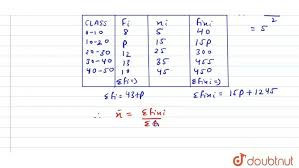 2
CLASS fi xi fixi = 5
0-10 8 5 40
10-20 p 15 15p
20-30 12 25 300
30-40 13 35 455
40-50 10 45 450
Σfi= Σfixi=
Σfi = 43+p Σfixi = 15p + 1245
∴ x̄ = Σfixi
Σfi
doubtnut